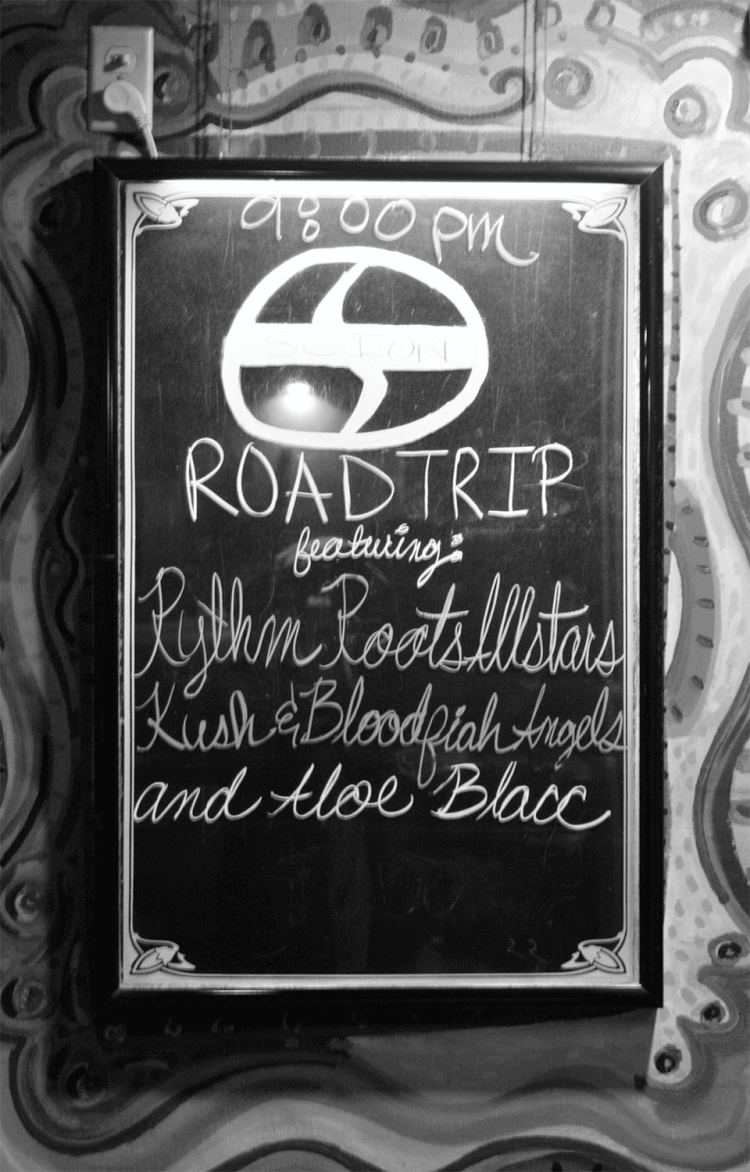 9:00 pm
SCION
ROADTRIP
featuring:
Rythm Roots Allstars
Kush & Bloodfiah Angels
and Aloe Blacc